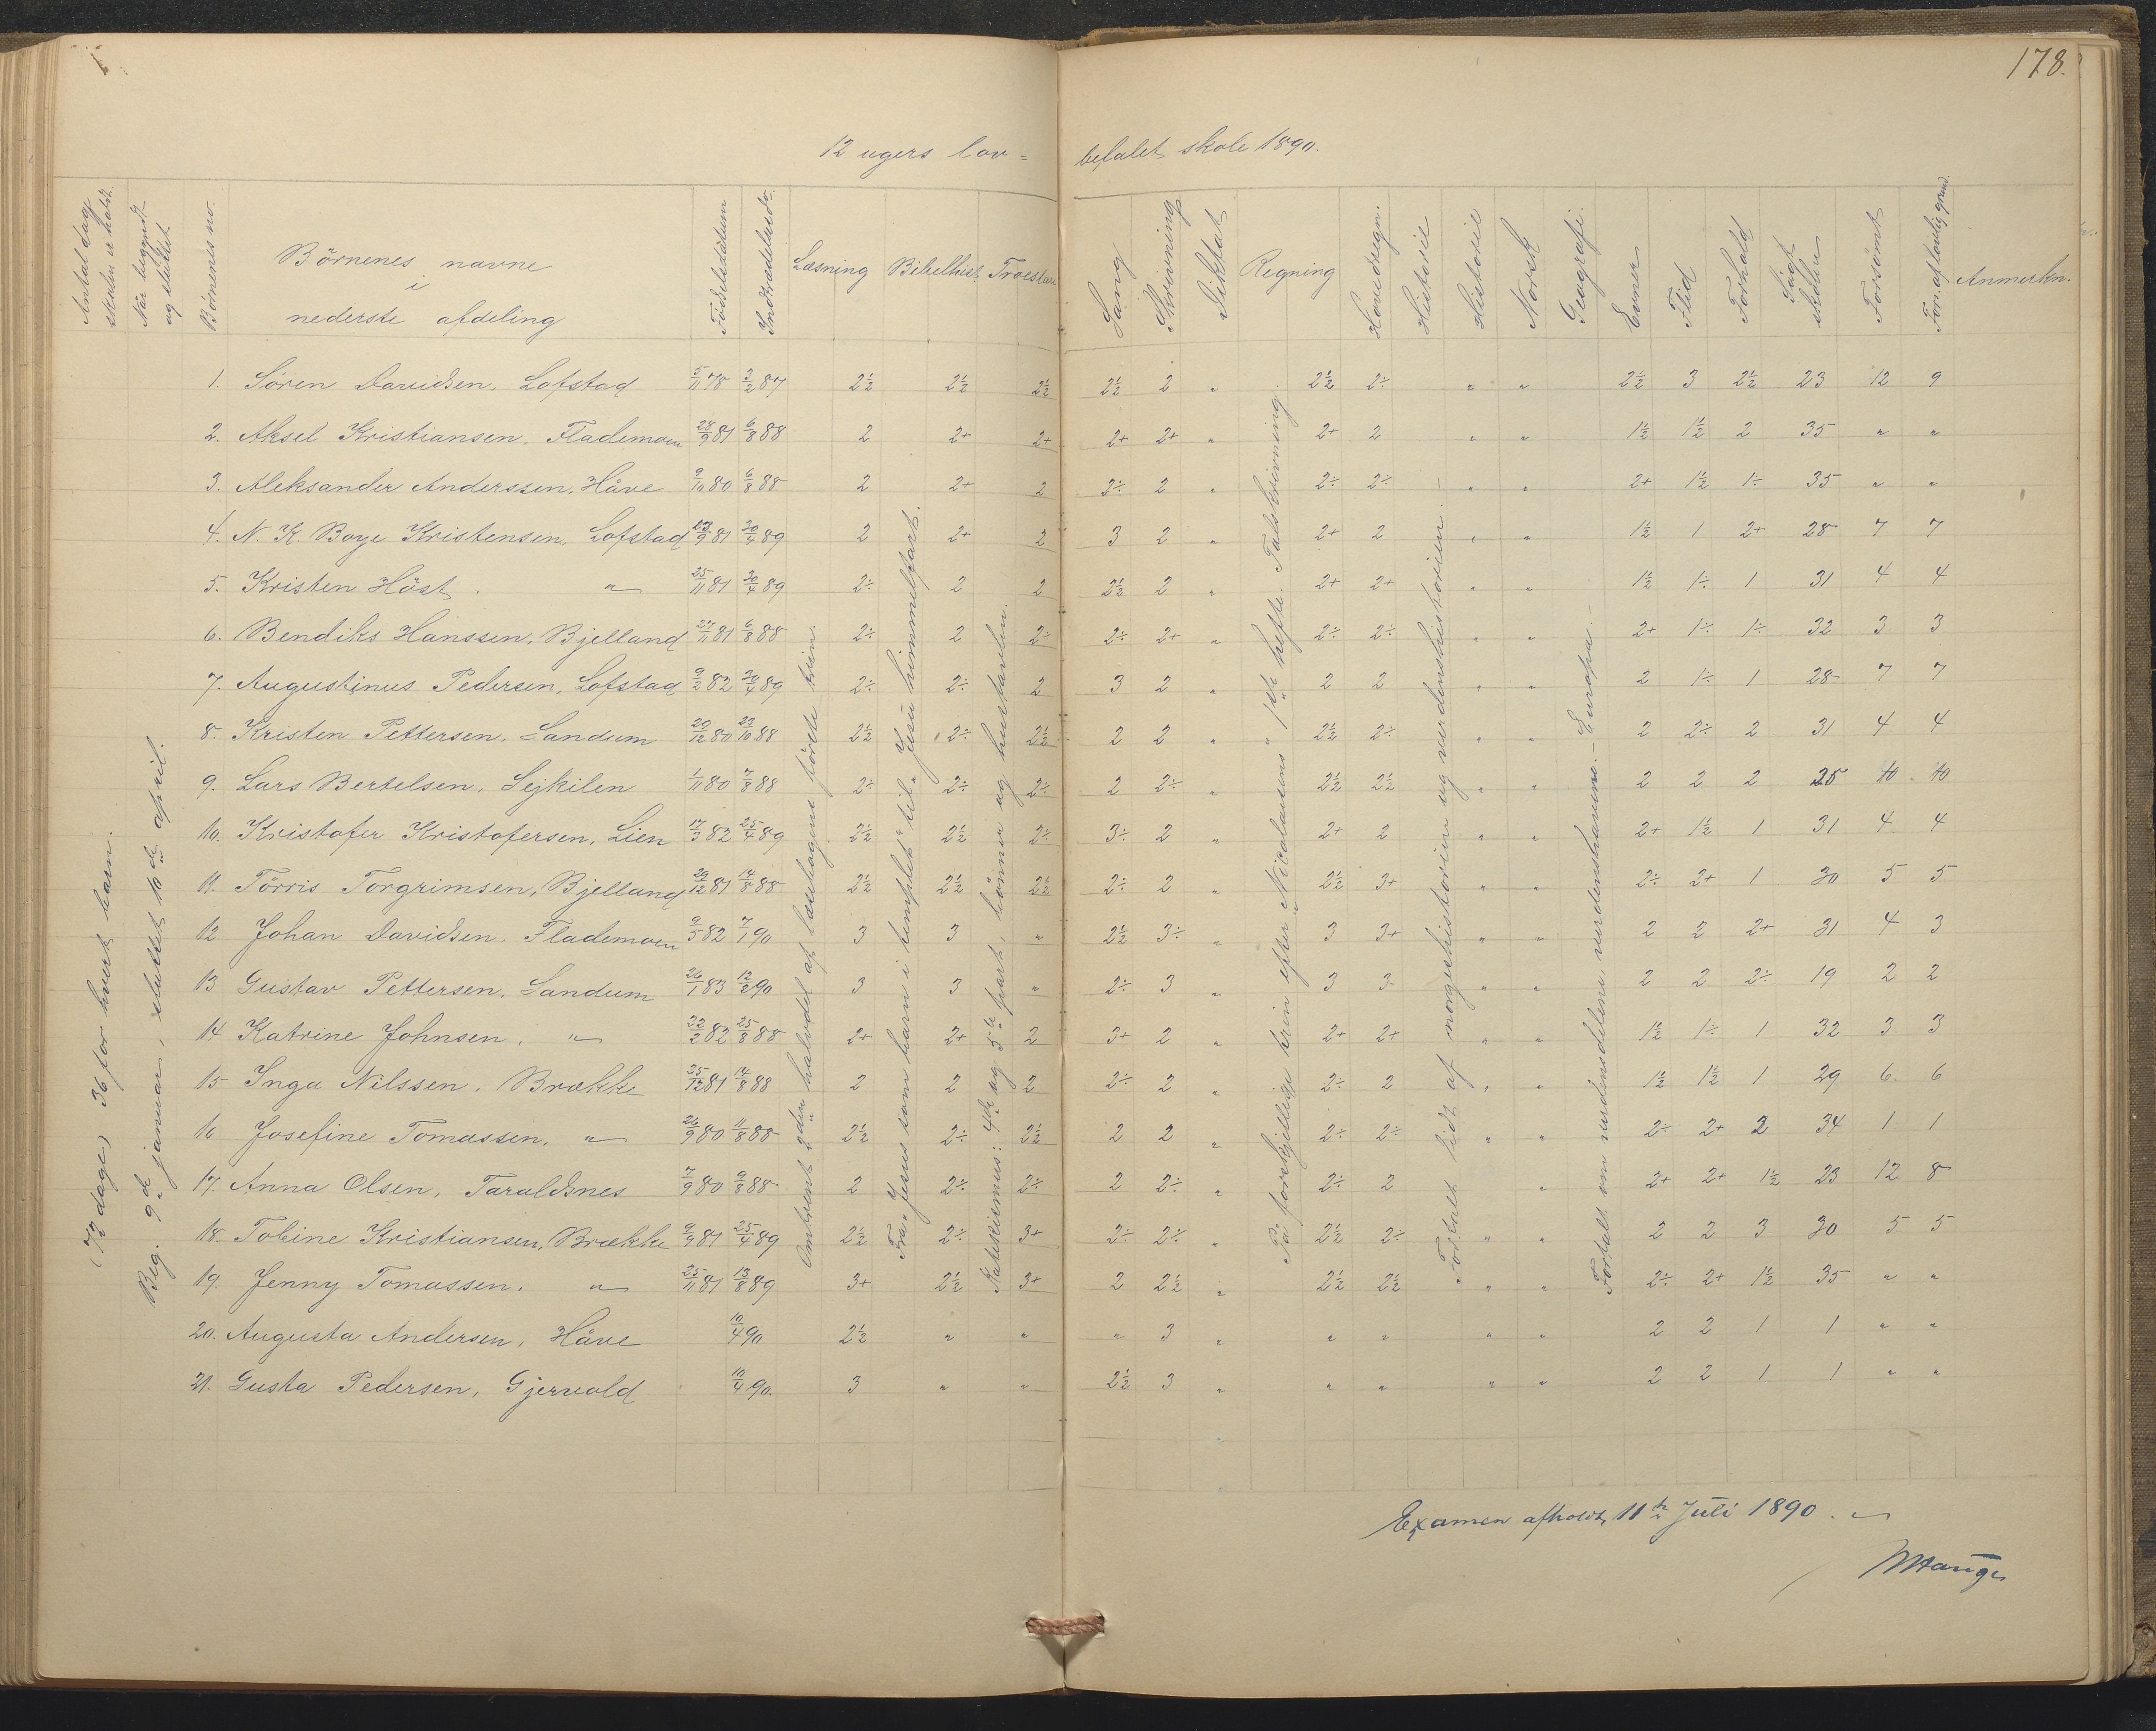 178.
12 ugers lov= befalet skole 1890.
Antal dag skolen er holdt.
Når begyndt og sluttet
Börnenes nr.
Börnenes navne
i
nederste afdeling
Födselsdatum
Indtrædelsesdat.
Læsning
Bibelhist.
Troeslære
Sang
Skrivning
Diktat
Regning
Hovedregn.
Historie
Historie
Norsk
Geografi.
Evner
Flid
Forhold
Sögt skolen
Forsömt
For. af lovlig grund.
Anmerkn.
(72 dage) 36 for hvert barn.
Beg. 9de januar, sluttet 10de april.
Omtrent 2den halvdel af læsebogens förste trin.
Fra „Jesus som barn i templet" til „Jesu himmelfart.
Katekismus: 4de og 5te part, bönner og hustavlen.
På forskjellige trin efter „Nicolaisens" 1ste hefte. Talskrivning.
Fortalt lidt af norgeshistorien og verdenshistorien.
Fortalt om verdensdelene, verdenshavene. – Europa. –
1. Sören Davidsen, Lofstad 5/11 78 3/2 87 2½ 2½ 2½ 2½ 2 „ 2½ 2÷ „ „ 2½ 3 2½ 23 12 9
2. Aksel Kristiansen, Flademoen 28/9 81 6/8 88 2 2+ 2+ 2+ 2+ „ 2+ 2 „ „ 1½ 1½ 2 35 „ „
3. Aleksander Anderssen, Håve 9/10 80 6/8 88 2 2+ 2 2÷ 2 „ 2÷ 2÷ „ „ 2+ 1½ 1÷ 35 „ „
4. N. K. Boye Kristensen, Lofstad 23/9 81 30/4 89 2 2+ 2 3 2 „ 2+ 2 „ „ 1½ 1 2+ 28 7 7
5. Kristen Höst, „ 25/11 81 30/4 89 2÷ 2 2 2½ 2 „ 2+ 2+ „ „ 1½ 1÷ 1 31 4 4
6. Bendiks Hanssen, Bjelland 27/11 81 6/8 88 2÷ 2 2÷ 2÷ 2+ „ 2÷ 2÷ „ „ 2+ 1÷ 1÷ 32 3 3
7. Augustinus Pedersen, Lofstad 9/2 82 30/4 89 2÷ 2÷ 2 3 2 „ 2 2 „ „ 2 1÷ 1 28 7 7
8. Kristen Pettersen, Sandum 29/12 80 23/10 88 2½ 2÷ 2½ 2 2 „ 2½ 2÷ „ „ 2 2÷ 2 31 4 4
9. Lars Bertelsen, Lejkilen 1/11 80 7/8 88 2÷ 2÷ 2÷ 2 2÷ „ 2½ 2½ „ „ 2 2 2 25 10 10
10. Kristofer Kristofersen, Lien 17/3 82 25/4 89 2½ 2½ 2÷ 3÷ 2 „ 2+ 2 „ „ 2+ 1½ 1 31 4 4
11. Törris Torgrimsen, Bjelland 29/12 81 14/8 88 2½ 2½ 2½ 2÷ 2 „ 2½ 3+ „ „ 2÷ 2+ 1 30 5 5
12 Johan Davidsen, Flademoen 9/5 82 7/1 90 3 3 „ 2½ 3÷ „ 3 3+ „ „ 2 2 2+ 31 4 3
13 Gustav Pettersen, Sandum 26/1 83 12/2 90 3 3 „ 2÷ 3 „ 3 3 „ „ 2 2 2÷ 19 2 2
14 Katrine Johnsen, „ 22/2 82 25/8 88 2+ 2+ 2 3+ 2 „ 2+ 2+ „ „ 1½ 1÷ 1 32 3 3
15 Inga Nilssen, Brække 25/12 81 14/8 88 2 2 2 2÷ 2 „ 2÷ 2 „ „ 1½ 1½ 1 29 6 6
16 Josefine Tomassen, „ 26/9 80 11/8 88 2½ 2÷ 2½ 2 2 „ 2÷ 2÷ „ „ 2÷ 2+ 2 34 1 1
17. Anna Olsen, Taraldsnes 7/9 80 9/8 88 2 2÷ 2÷ 2 2÷ „ 2÷ 2 „ 2+ 2+ 1½ 23 12 8
18. Tobine Kristiansen, Brække 9/9 81 25/4 89 2½ 2÷ 3+ 2÷ 2÷ „ 2½ 2÷ „ „ 2 2 3 30 5 5
19. Jenny Tomassen, „ 25/11 81 13/8 89 3+ 2½ 3+ 2 2½ „ 2½ 2½ „ „ 2÷ 2+ 1½ 35 „ „
20. Augusta Andersen, Håve 10/4 90 2½ „ „ „ 3 „ „ „ „ „ 2 2 1 1 „ „
21. Gusta Pedersen, Gjervold 10/4 90. 3 „ „ 2½ 3 „ „ „ „ „ 2 2 1 1 „ „
Examen afholdt 11te Juli 1890.